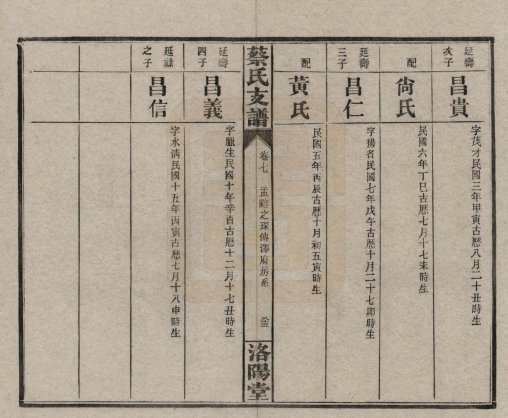 延壽次子
昌貴
字茂才民國三年甲寅古歷八月二十丑時生
配
尙氏
民國六年丁巳古歷七月十七未時生
延壽三子
昌仁
字揚者民國七年戊午古歷十月二十七卯時生
配
黃氏
民國五年丙辰古歷十月初五寅時生
蔡氏支譜
卷七
洛陽堂
延壽四子
昌義
字臘生民國十年辛酉古歷十二月十七丑時生
延祿之子
昌信
字水淸民國十五年丙寅古歷七月十八申時生